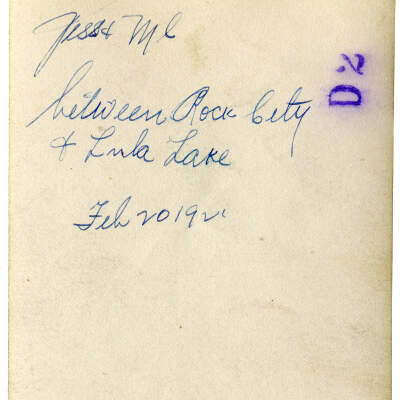 Jess & Me
between Rock City
& Lula Lake
Feb 20 1921
D2